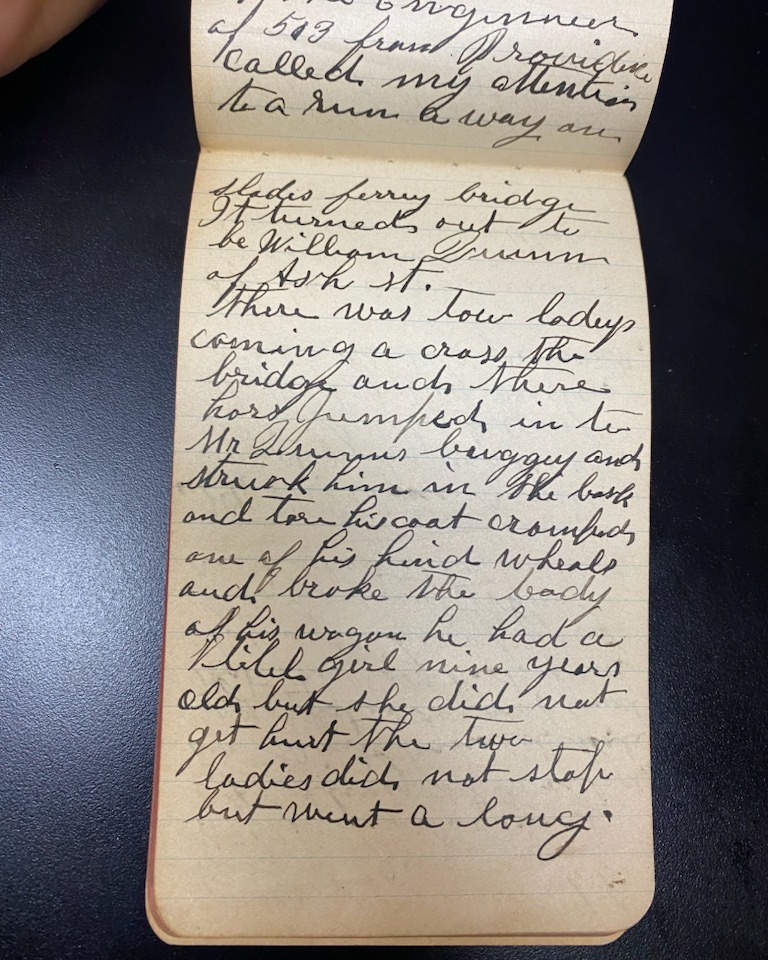 the Enginneer
of 513 from Providence
called my attention
to a run a way on
slades ferry bridge
It turned out to
be William Dunn
of Ash st.
there was tow ladeys
coming a cross the
bridge and there
hors Jumped in to
Mr Dunns buggey and
struck him in the back
and tore his coat cromped
one of his hind wheals
and broke the body
of his wagon he had a
litel girl nine years
old but she did not
get hurt the two
ladies did not stop
but went a long.